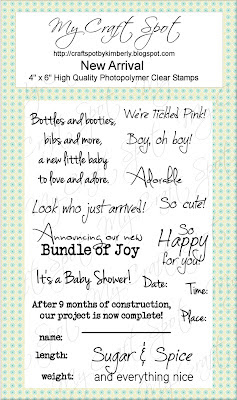 My Craft Spot
http://craftspotbykimberly.blogspot.com
New Arrival
4" x 6" High Quality Photopolymer Clear Stamps
Bottles and booties,
bibs and more,
a new little baby
to love and adore.
We're tickled Pink!
Boy, oh boy!
Adorable
Look who just arrived!
So cute!
Announcing our new
Bundle of Joy
So
Happy
for you
It's a Baby Shower!
Date:
Time:
After 9 months of construction,
our project is now complete!
Place:
name:
length:
weight:
Sugar & Spice
and everything nice